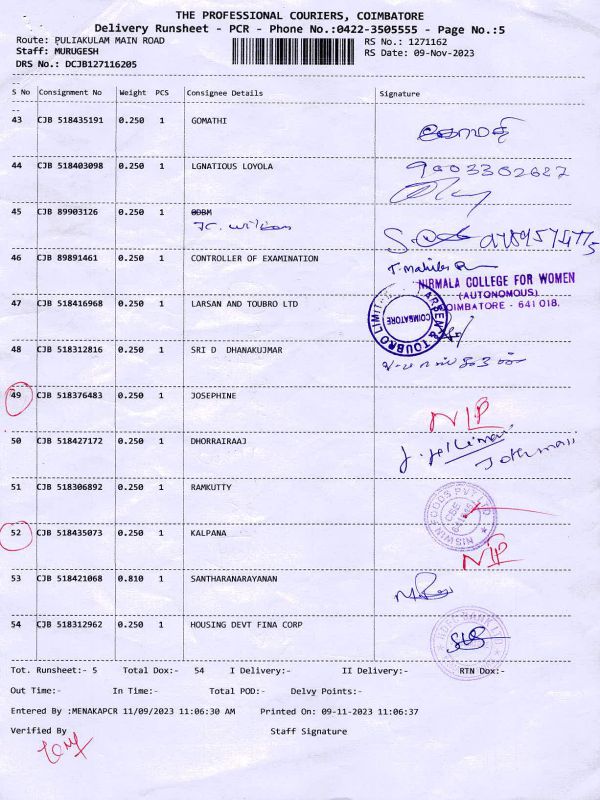 THE PROFESSIONAL COURIERS, COIMBATORE
Delivery Runsheet - PCR - Phone No.:0422-3505555 - Page No.:5
Route: PULIAKULAM MAIN ROAD RS No.: 1271162
Staff: MURUGESH RS Date: 09-Nov-2023
DRS No.: DCJB127116205
S No Consignment No Weight PCS Consignee Details Signature
43 CJB 518435191 0.250 1 GOMATHI கோமதி
44 CJB 518403098 0.250 1 LGNATIOUS LOYOLA
45 CJB 89903126 0.250 1 ODBM
46 CJB 89891461 0.250 1 CONTROLLER OF EXAMINATION
NIRMALA COLLEGE FOR WOMEN
(AUTONOMOUS)
COIMBATORE - 641 018.
47 CJB 518416968 0.250 1 LARSAN AND TOUBRO LTD
LARSEN & TOUBRO LIMIT
COIMBATORE
48 CJB 518312816 0.250 1 SRI D DHANAKUJMAR
49 CJB 518376483 0.250 1 JOSEPHINE NIP
50 CJB 518427172 0.250 1 DHORRAIRAAJ
51 CJB 518306892 0.250 1 RAMKUTTY
NISWIN FOODS PVT LTD
52 CJB 518435073 0.250 1 KALPANA NIP
53 CJB 518421068 0.810 1 SANTHARANARAYANAN
54 CJB 518312962 0.250 1 HOUSING DEVT FINA CORP
Tot. Runsheet:- 5 Total Dox:- 54 I Delivery:- II Delivery:- RTN Dox:-
Out Time:- In Time:- Total POD:- Delvy Points:-
Entered By :MENAKAPCR 11/09/2023 11:06:30 AM Printed On: 09-11-2023 11:06:37
Verified By Staff Signature